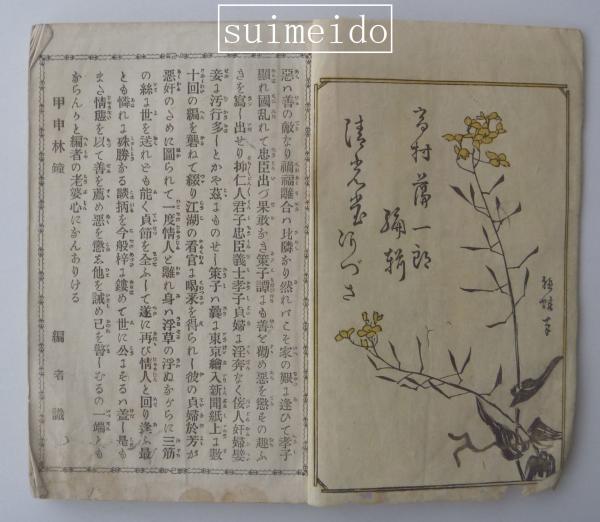 suimeido
高村藩一郎
編輯
清光堂
悪ハ善の敵なり禍福離合ハ比隣かり然れバこそ家の艱ま逢ひて孝子
顕れ國乱れて忠臣出づ果敢かき策子譚まも善と勧め悪を懲その趣ふ
きを寫ー出せり抑仁人君子忠臣義士孝子貞婦ま淫奔なく侫人奸婦嬖
妾ま汚行多ーとかや茲まものせー策子ハ曩ま東京繪入新聞紙上ま数
十回の稿を畳ねて綴り江湖の看官ま喝采を得られー彼の貞婦於芳が
悪奸のために圖られて一度情人と離れ身ハ浮草の浮ぬかぐらに三筋
の絲ま世を送れども能く貞節を全ふーて遂に再び情人と回り逢ふ最
とも憐れま殊勝かる談柄を今般梓ま鏤めて世に公まそるハ蓋ー是も
また情態を以て善を薦め悪を懲ゑ他を誡め己を警ーむるの一端とも
かららんかと編者の老婆心にかんありける
甲申林鐘
編者識